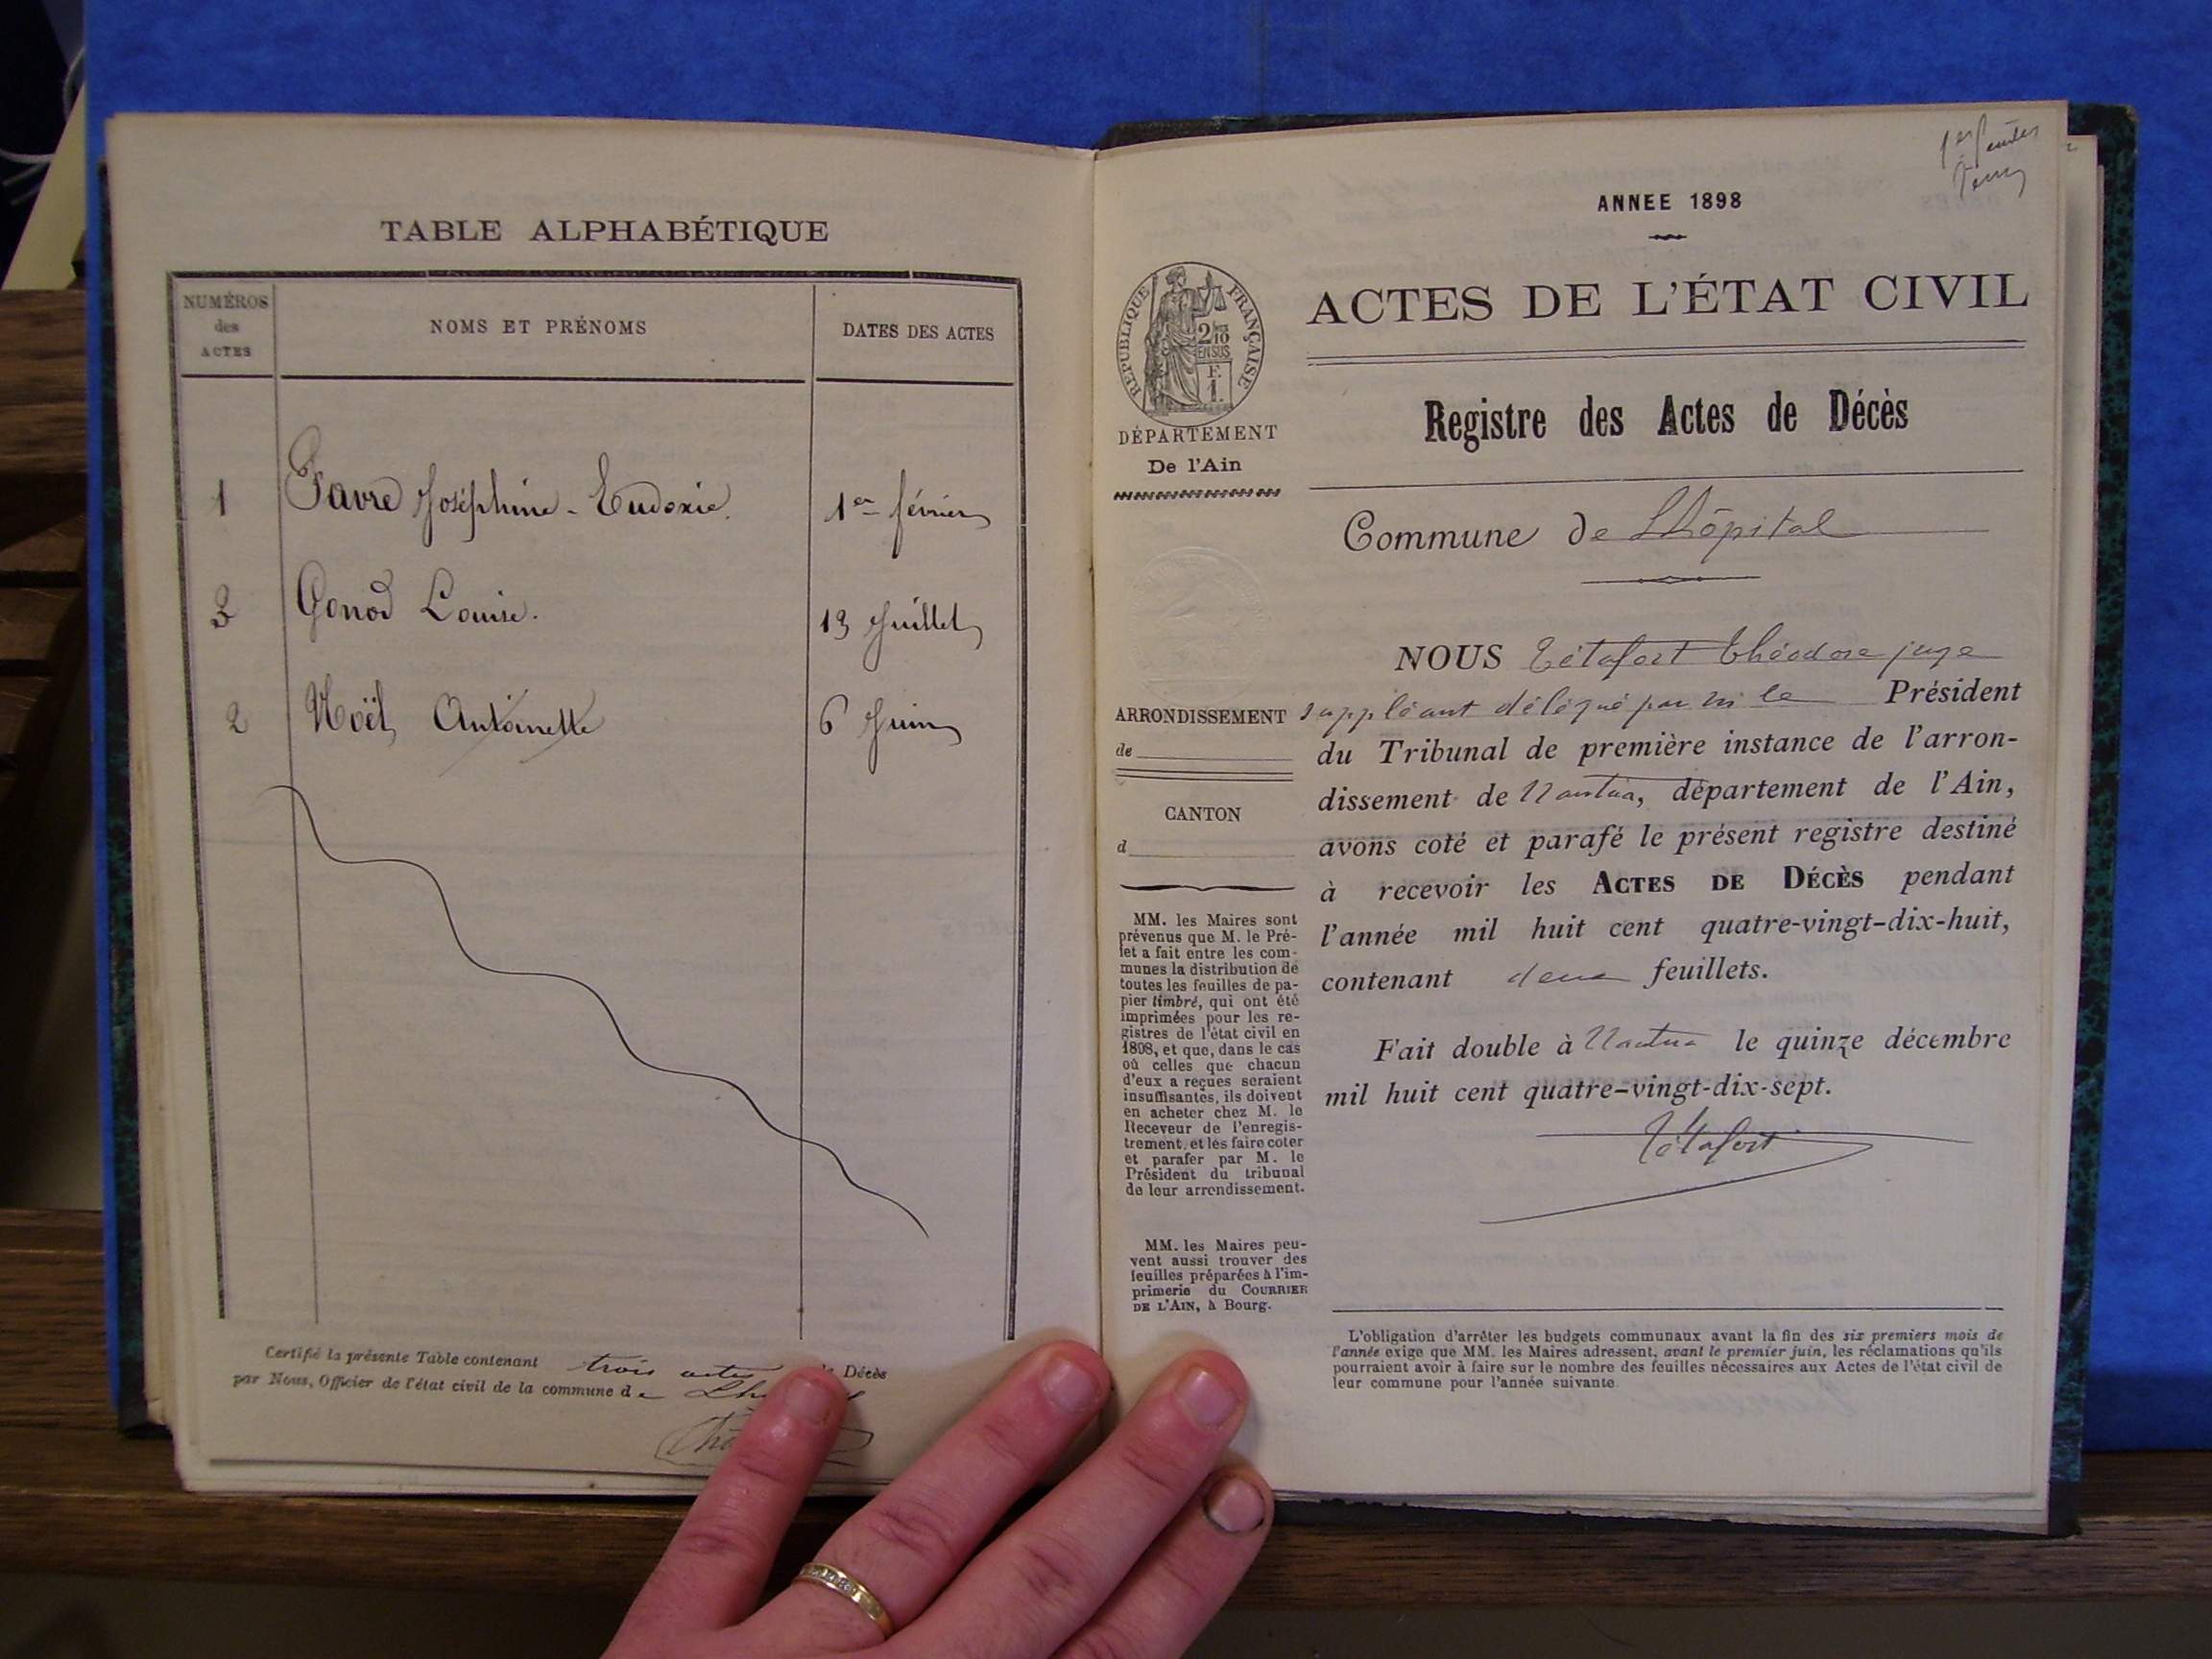 TABLE ALPHABÉTIQUE
NUMÉROS des ACTES
NOMS ET PRÉNOMS
DATES DES ACTES
1 Favre Joséphine - Eudoxie. 1er février
3 Gonod Louise. 13 Juillet
2 Noël Antoinette 6 Juin
Certifié la présente Table contenant trois actes de Décès
par Nous, Officier de l'état civil de la commune de
1er feuillet
ANNEE 1898
RÉPUBLIQUE FRANÇAISE
2/10
EN SUS
F.
1.
ACTES DE L'ÉTAT CIVIL
Registre des Actes de Décès
DÉPARTEMENT
De l'Ain
Commune de Lhôpital
NOUS Tétafort Théodore juge
suppléant délégué par m le Président
du Tribunal de première instance de l'arron-
dissement de Nantua, département de l'Ain,
avons coté et parafé le présent registre destiné
à recevoir les ACTES DE DÉCÈS pendant
l'année mil huit cent quatre-vingt-dix-huit,
contenant deux feuillets.
Fait double à Nantua le quinze décembre
mil huit cent quatre-vingt-dix-sept.
Tétafort
ARRONDISSEMENT
de
CANTON
d
MM. les Maires sont
prévenus que M. le Pré-
fet a fait entre les com-
munes la distribution de
toutes les feuilles de pa-
pier timbré, qui ont été
imprimées pour les re-
gistres de l'état civil en
1898, et que, dans le cas
où celles que chacun
d'eux a reçues seraient
insuffisantes, ils doivent
en acheter chez M. le
Receveur de l'enregis-
trement, et les faire coter
et parafer par M. le
Président du tribunal
de leur arrondissement.
MM. les Maires peu-
vent aussi trouver des
feuilles préparées à l'im-
primerie du COURRIER
DE L'AIN, à Bourg.
L'obligation d'arrêter les budgets communaux avant la fin des six premiers mois de
l'année exige que MM. les Maires adressent, avant le premier juin, les réclamations qu'ils
pourraient avoir à faire sur le nombre des feuilles nécessaires aux Actes de l'état civil de
leur commune pour l'année suivante.